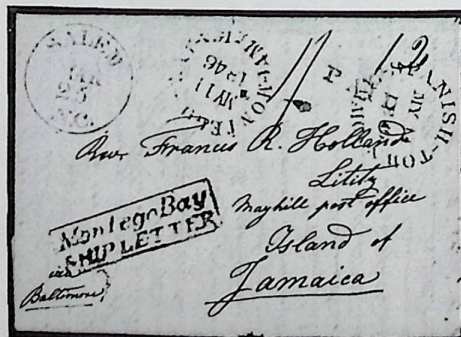 SALEM
MAR
25
N.C.
MONTEGO
MY 11
1846
SPANISH-TOW
MY
Rev Francis R. Holland
Lititz
Mayhill post office
Island of
Jamaica
Montego Bay
SHIP LETTER
via
Baltimore